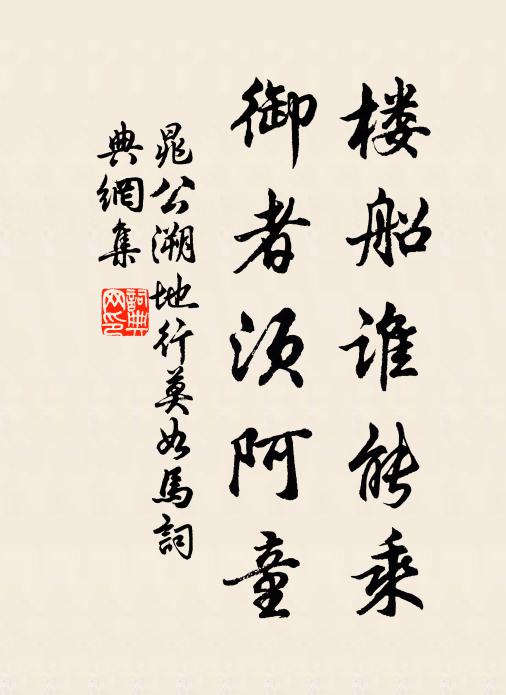 楼船谁能乘
御者须阿童
晁公溯地行莫如馬詞
典網集
詞典
网印